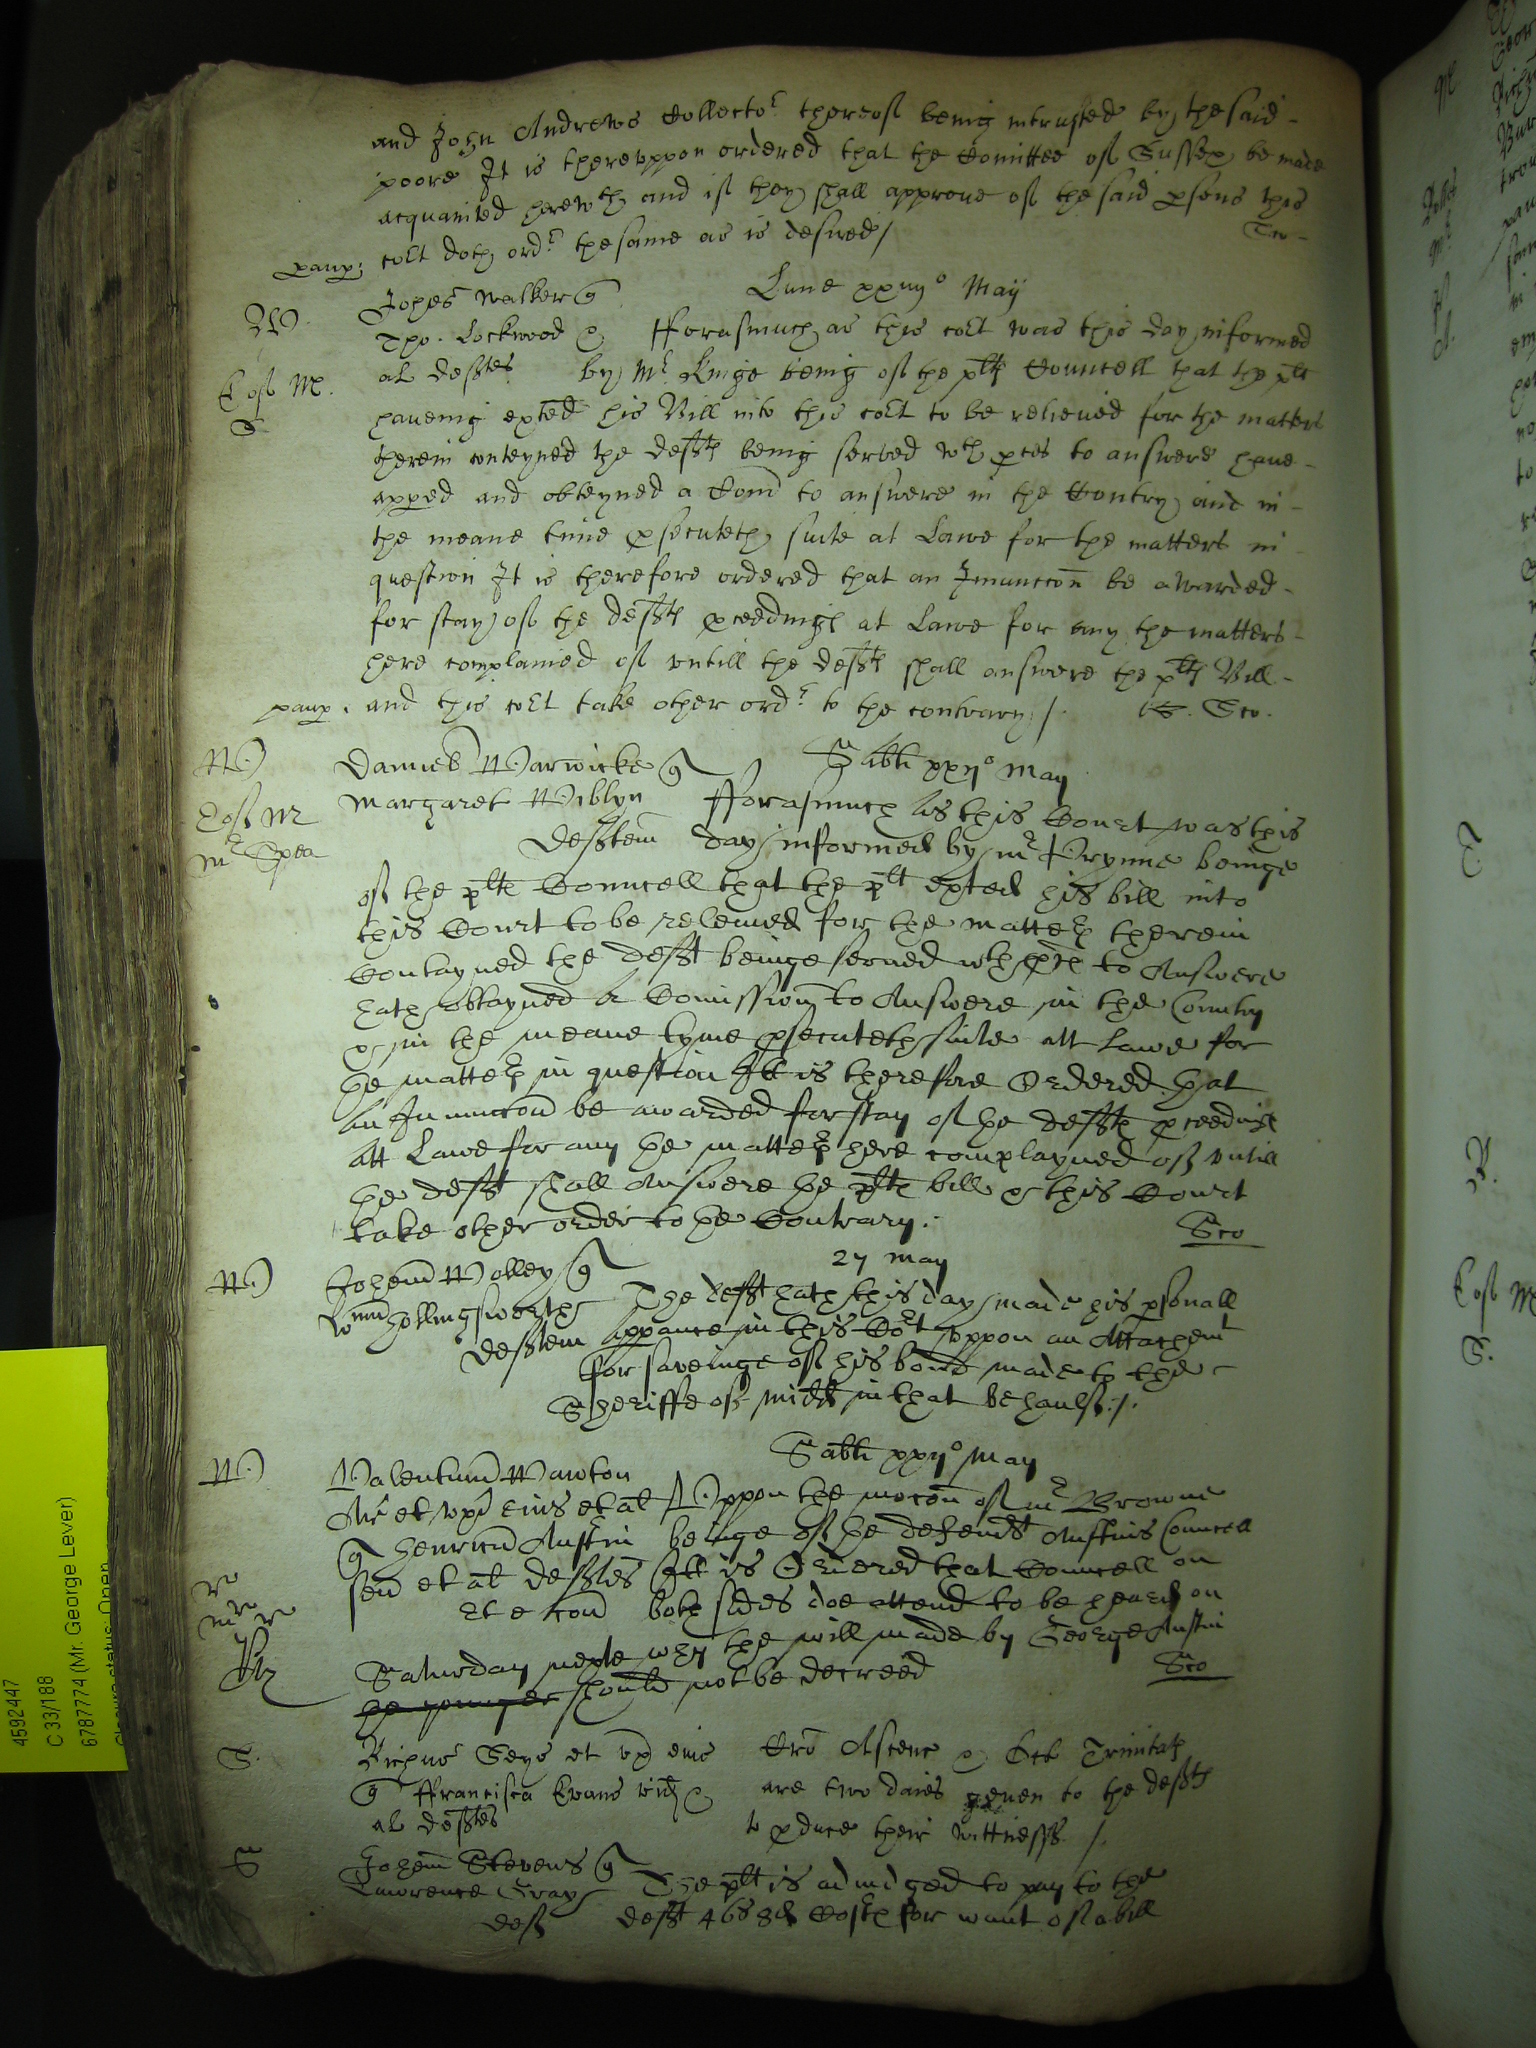 and John Andrews Collector thereof being intrusted by the said
poore It is thereuppon ordered that the Comittee of Sussex be made
acquainted herewth and if they shall approve of the said psons this
cort doth ordr the same as is desired /
paup
Lune May
W Johes Walker
Tho. Lockwood & fforasmuch as this cort was this day informed
al deftes by Mr Kinge being of the plts Councell that the plt
haveing exted his Bill into this cort to be relieved for the matters
therein conteyned the defts being served wth pces to answere have
apped and obteyned a Com to answere in the Contry and in
the meane time psecuteth suite at Lawe for the matters in
question It is therefore ordered that an Iniunccon be awarded
for stay of the defts pceedings at Lawe for any the matters
here complained of untill the defts shall answere the plts Bill
paup. and this cort take other ordr to the contrary /.
W Daniel Warwicke Sabti xxij° May
Margaret Wiblyn fforasmuch as this Court was this
deftem day informed by mr Prynne beinge
of the plts Councell that the plt exted his bill into
this Court to be releived for the matters therein
Contayned the deft beinge served wth to Answere
hath obtayned a Comission to Answere in the Country
& in the meane tyme psecuteth suite att Lawe for
the matters in question Itt is therefore Ordered that
an Iniunccon be awarded for stay of the defts pceedings
att Lawe for any the matters here complayned of untill
the deft shall Answere the plts bill & this Court
take other order to the Contrary.
W Johem Wolley 27 May
Hollingsworth The deft hath this day made his psonall
deftem appance in this Cort uppon an Attachemt
for saveinge of his bond made to the
Sheriffe of Midd in that behaulf ./.
Sabti xxij° May
W Valentinu Wauton
Ar et ux eius et al Uppon the mocon of mr Browne
Henricu Austin beinge of the defendt Austins Councell
sen et al deftes Itt is Ordered that Councell on
et e con both sides doe attend to be heard on
Saturday nexte why the will made by George Austin
the younger should not be decreed
S. Richus Seys et ux eius Cro Ascenc & Oct Trinitat
ffrancisca Evans vid & are two daies geven to the defts
al deftes to pduce their wittnesses /.
S Johem Stevens
Lawrence Gray The plt is adiudged to pay to the
def deft 46s 8d Costs for want of a bill
4592447
C 33/188
6787774 (Mr. George Lever)
Closure status: Open